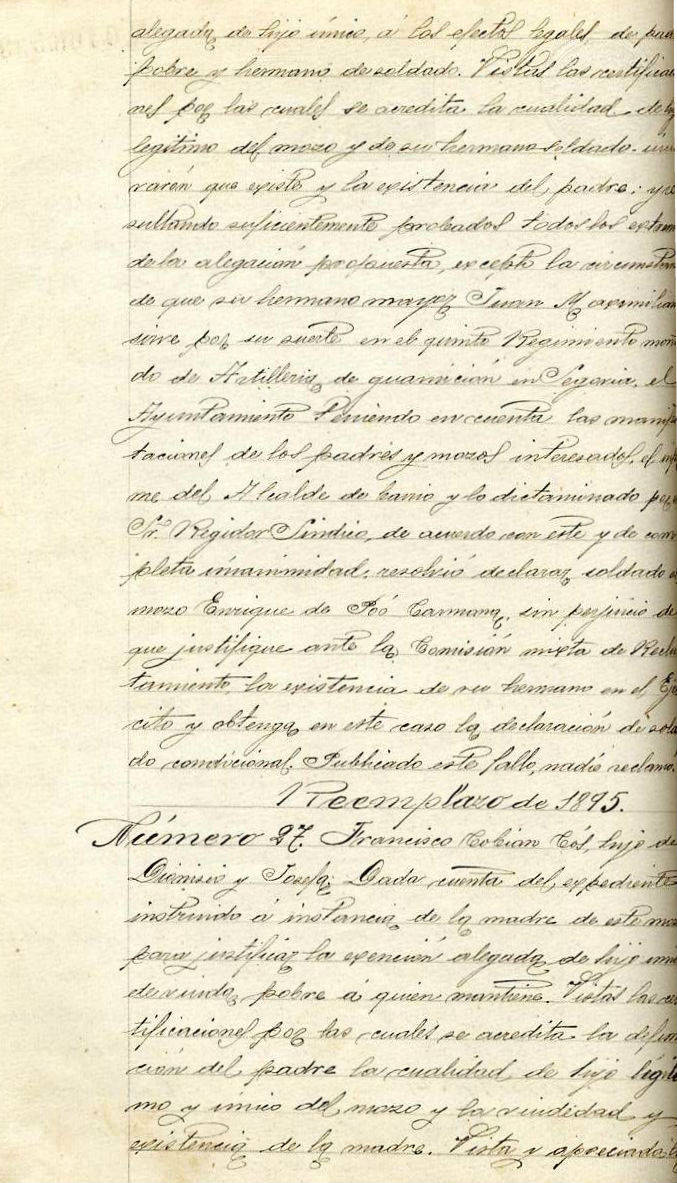 alegada de hijo único, á los efectos legales, de pad
pobre y hermano de soldado. Vistas las certificacio
nes por las cuales se acredita la cualidad de hij
legitimo del mozo y de su hermano soldado, uni
varón que existe y la existencia del padre; y re
sultando suficientemente probados todos los extrem
de la alegación propuesta, excepto la circunstan
de que su hermano mayor Juan Maximilian
sirve por su suerte en el quinto Regimiento mon
do de Artilleria de guarnición en Segovia, el
Ayuntamiento teniendo en cuenta las manifes
taciones de los padres y mozos interesados, el info
me del Alcalde de barrio y lo dictaminado por e
Sr. Regidor Síndico, de acuerdo con este y de com
pleta unanimidad, resolvió declarar soldado a
mozo Enrique de Póo Carmona, sin perjuicio de
que justifique ante la Comisión mixta de Reclu
tamiento, la existencia de su hermano en el Ejé
cito y obtenga en este caso la declaración de sola
do condicional. Publicado este fallo, nadie reclamó.
Reemplazo de 1895.
Número 27. Francisco Cobian Cós, hijo de
Dionisio y Josefa: Dada cuenta del expediente
instruido á instancia de la madre de este moz
para justificar la exención alegada de hijo úni
de viuda pobre á quien mantiene. Vistas las cer
tificaciones por las cuales se acredita la defun
ción del padre la cualidad de hijo legíti
mo y único del mozo y la viudidad y
existencia de la madre. Vista y apreciada la